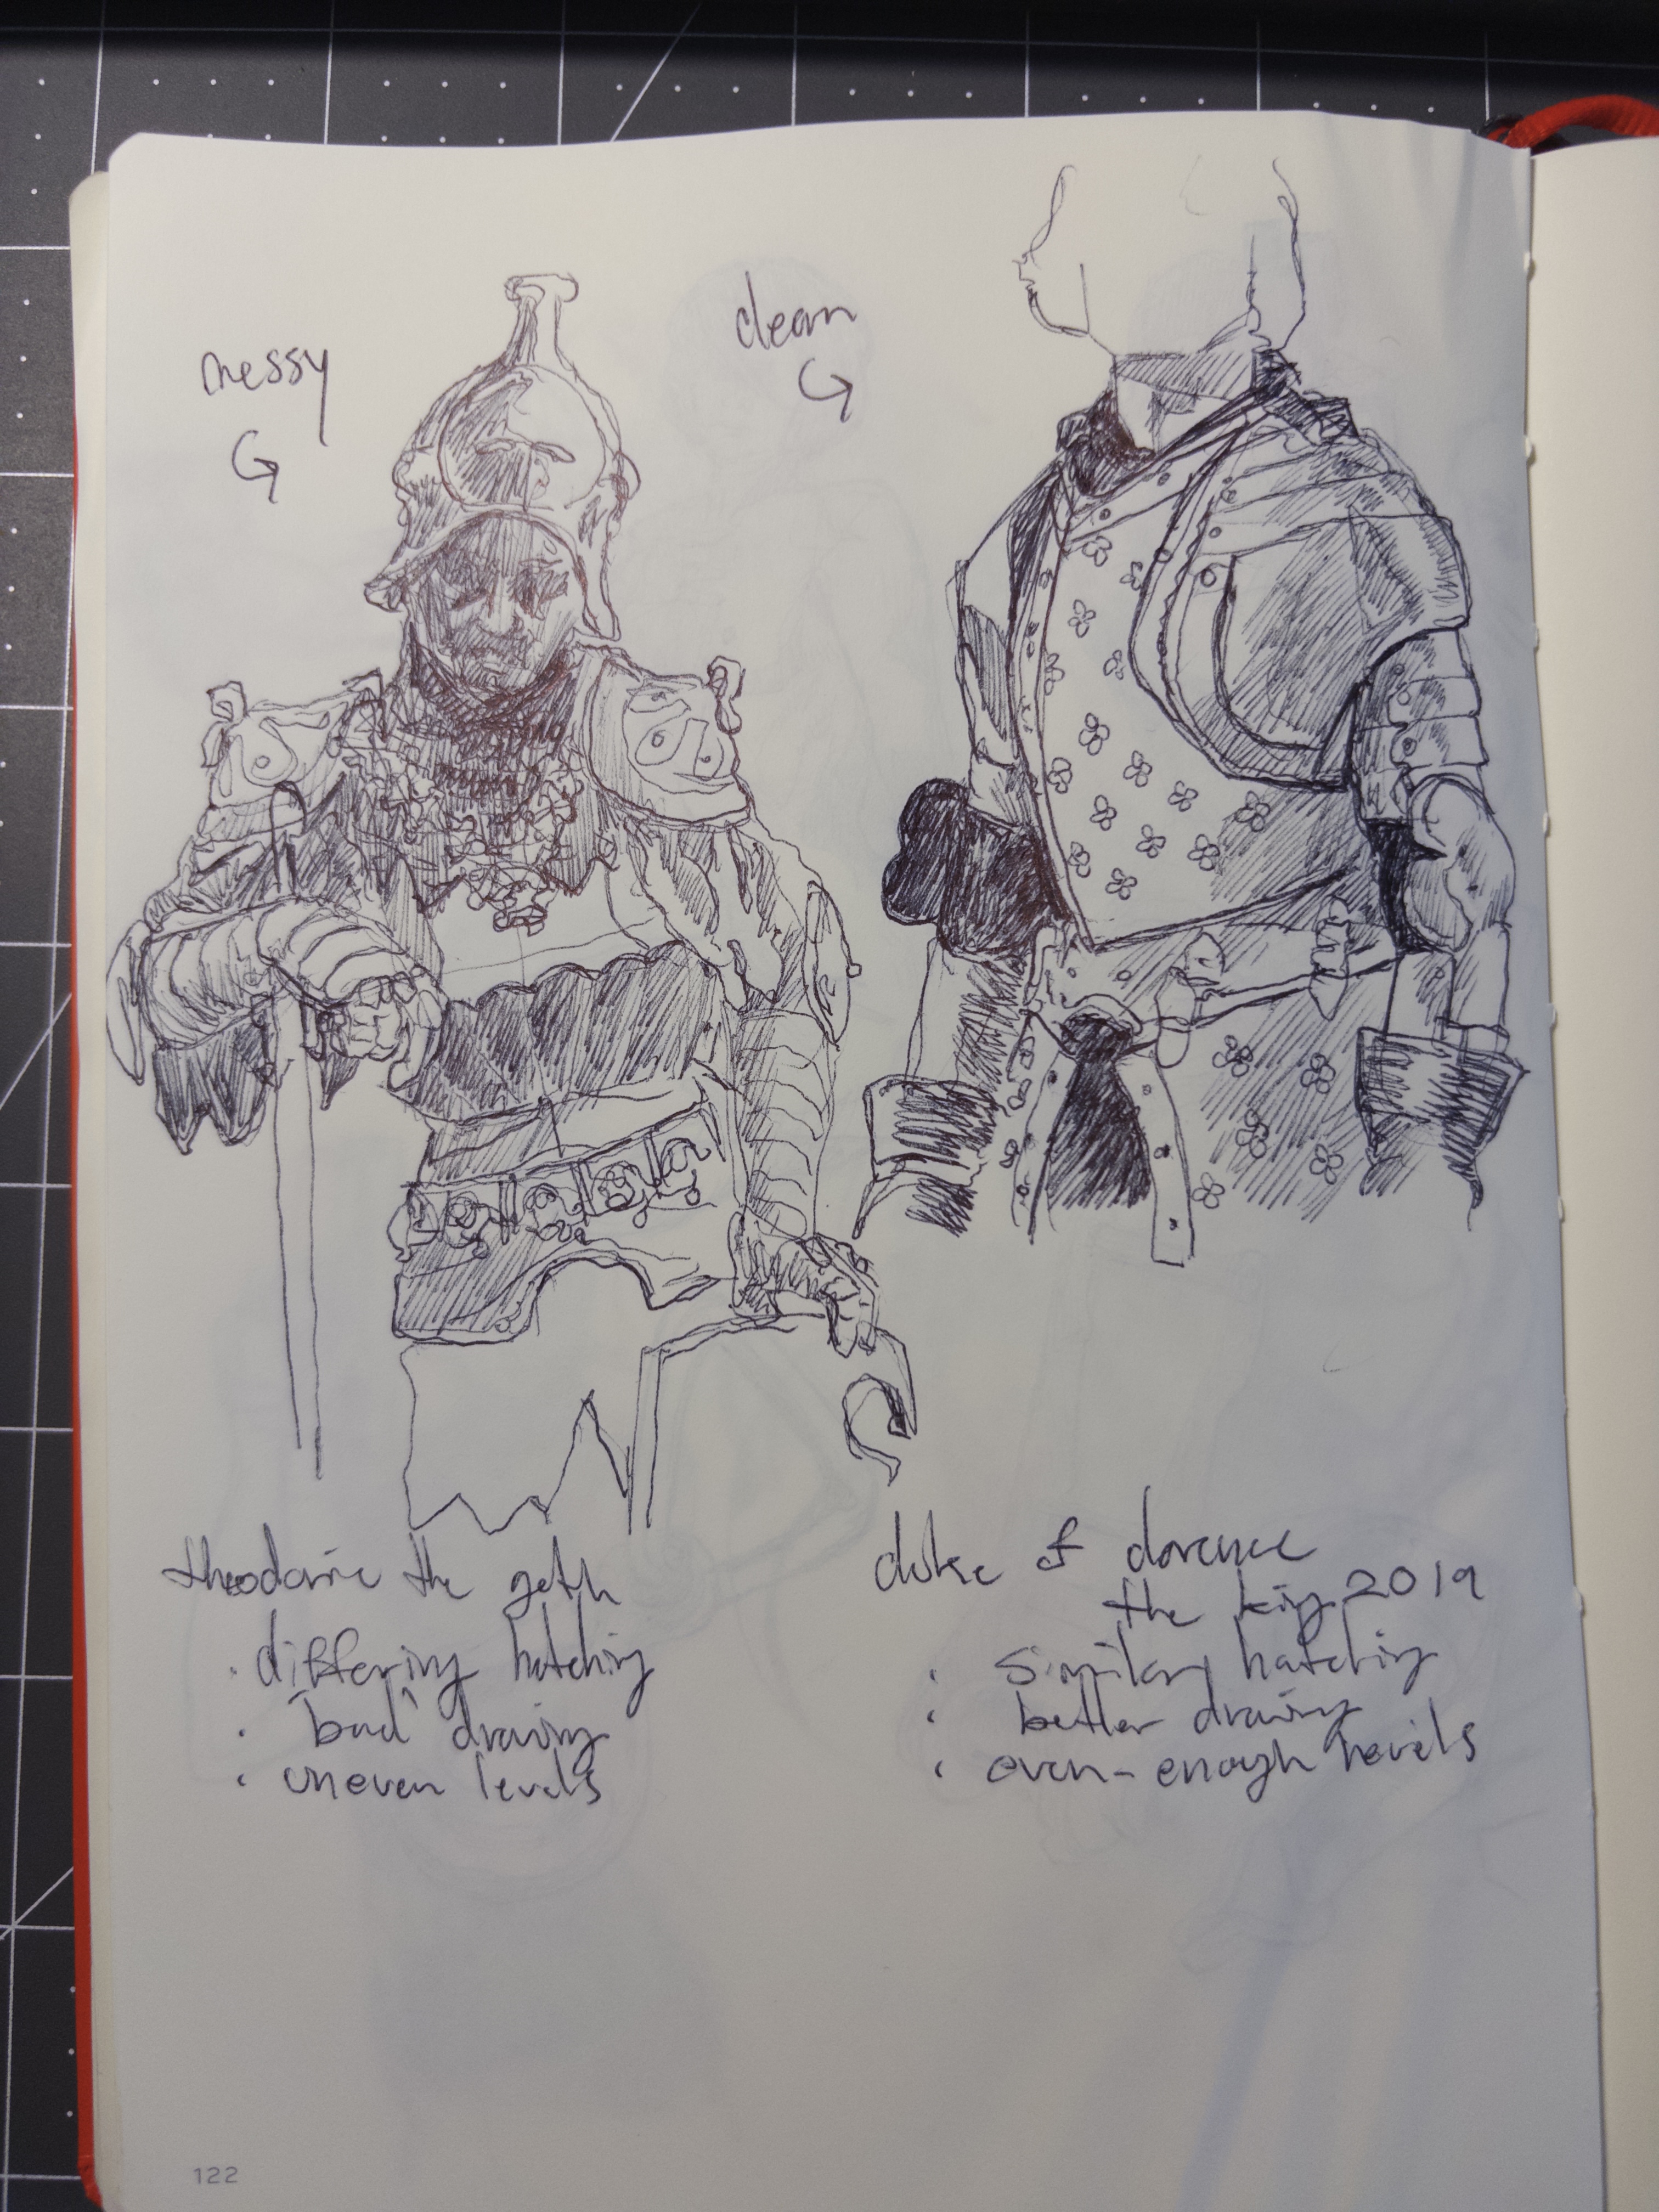 messy
clean
theodoric the goth
· differing hatching
· "bad" drawing
· uneven levels
duke of clarence
the king 2019
· similar hatching
· better drawing
· even-enough levels
122